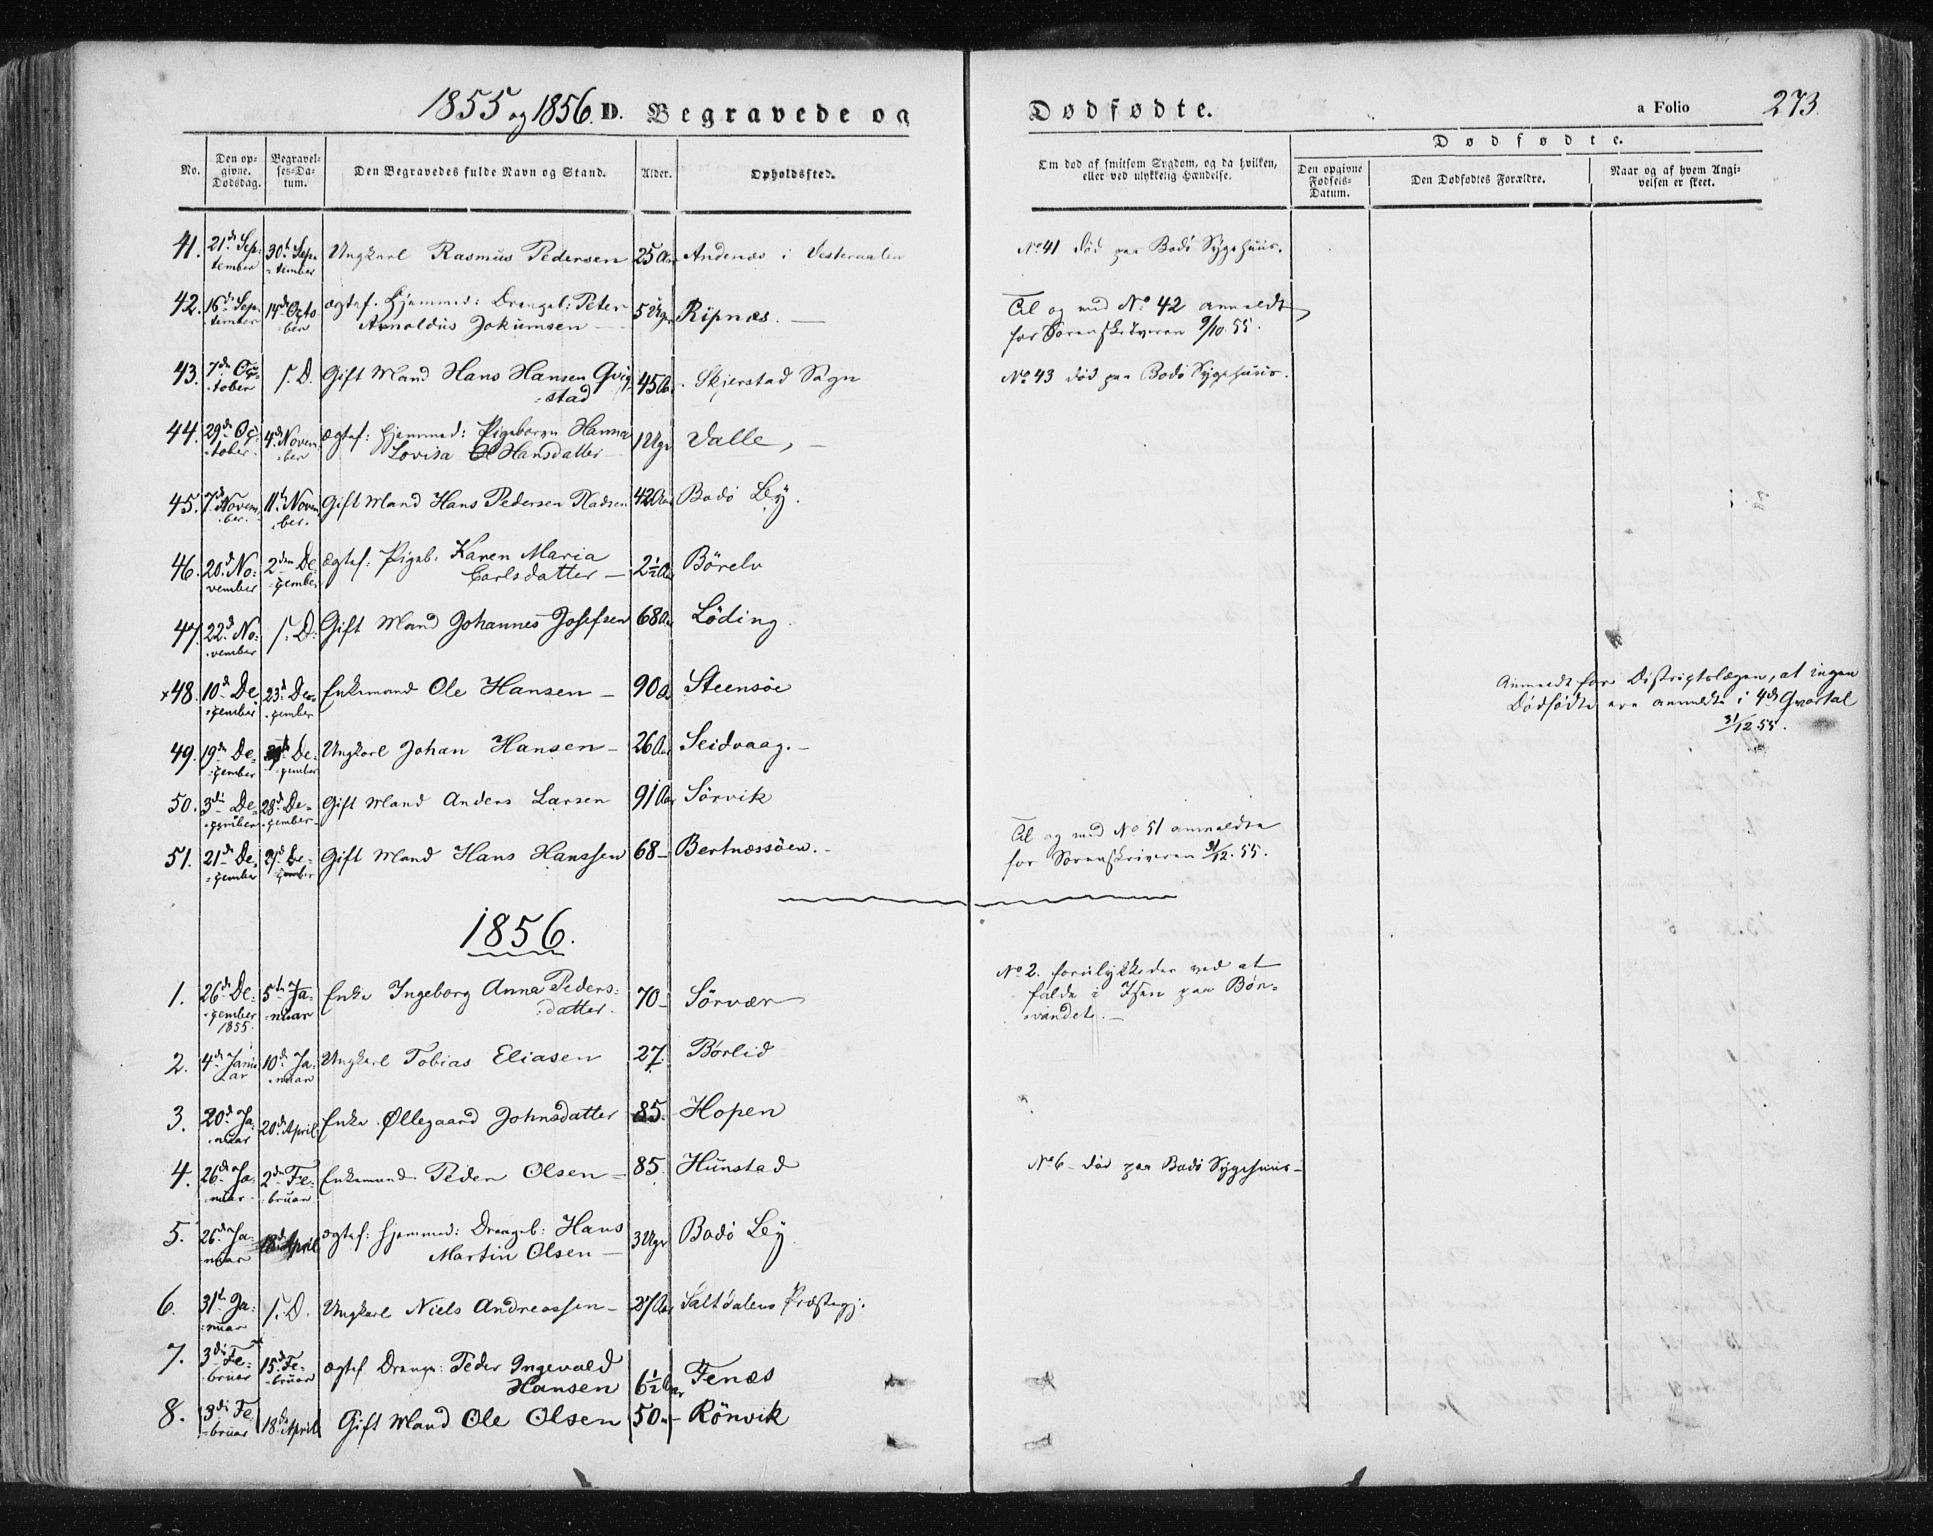 1855 og 1856. D. Begravede og Dødfødte. a Folio 273.
No. Den opgivne Dødsdag. Begravelses-Datum. Den Begravedes fulde Navn og Stand. Alder. Opholdssted.
Om død af smitsom Sygdom, og da hvilken, eller ved ulykkelig Hændelse. Dødfødte.
Den opgivne Fødsels-Datum. Den Dødfødtes Forældre. Naar og af hvem Angivelsen er skeet.
41. 21de September 30te September Ungkarl Rasmus Pedersen 25 Aar Andenæs i Vesteraalen
No 41 død paa Bodö Sygehuus.
42. 16de September 14de October ægtef. hjemmed: Drengeb: Peter
Arnoldus Jokumsen 5 Uger Ripnæs.
Til og med No. 42 anmeldt
for Sorenskriveren 9/10 55.
43. 7de October s. D. Gift Mand Hans Hansen Qvig
=stad 45 Aar Skjerstad Sogn
No 43 død paa Bodö Sygehuus.
44. 29de October 4de November ægtef: hjemmed: Pigebarn Hanna
Lovisa Hansdatter 1 Uge Valle,
45. 7de November 11te November Gift Mand Hans Pedersen Madsen 42 Aar Bodö Ley.
46. 20de November 2den December ægtef: Pigeb: Karen Maria
Carlsdatter 2½ Aar Börelv
47. 22de November s. D. Gift Mand Johannes Josefsen 68 Aar Löding.
×48. 10de December 23de December Enkemand Ole Hansen 90 Aar Steensöe
Anmeldt for Distriktslægen, at ingen
Dødfødte ere anmeldte i 4de Qvartal
31/12 55.
49. 19de December December Ungkarl Johan Hansen 26 Aar Seidvaag.
50. 3die December 28de December Gift Mand Anders Larsen 91 Aar Sörvik
51. 21de December December Gift Mand Hans Hanssen 68 Bertnæssöen.
Til og med No 51 anmeldte
for Sorenskriveren 31/12. 55.
1856.
1. 26de December 1855. 5te Januar Enke Ingeborg Anna Peders=
=datter. 70 Sörvær
No 2. forulykkedes ved at
falde i Isen paa Bön=
=vandet.
2. 4de Januar 10de Januar Ungkarl Tobias Eliasen 27. Börlid
3. 20de Januar 20de April Enke Øllegaard Johnsdatter 85. Hopen
4. 26de Januar 2den Februar Enkemand Peder Olsen 85. Hunstad
No 6 død paa Bodö Sygehuus
5. 26de Januar 18de April ægtef: hjemmed: Drengeb: Hans
Martin Olsen 3 Uger Bodö Ley
6. 31te Januar s. D. Ungkarl Niels Andreassen 27 Aar Saltdalens Præstegj.
7. 3die Februar 15de Februar ægtef. Drenge: Peder Ingevald
Hansen 6½ Aar Fenæs
8. 3die Februar 18de April Gift Mand Ole Olsen 50 Rönvik